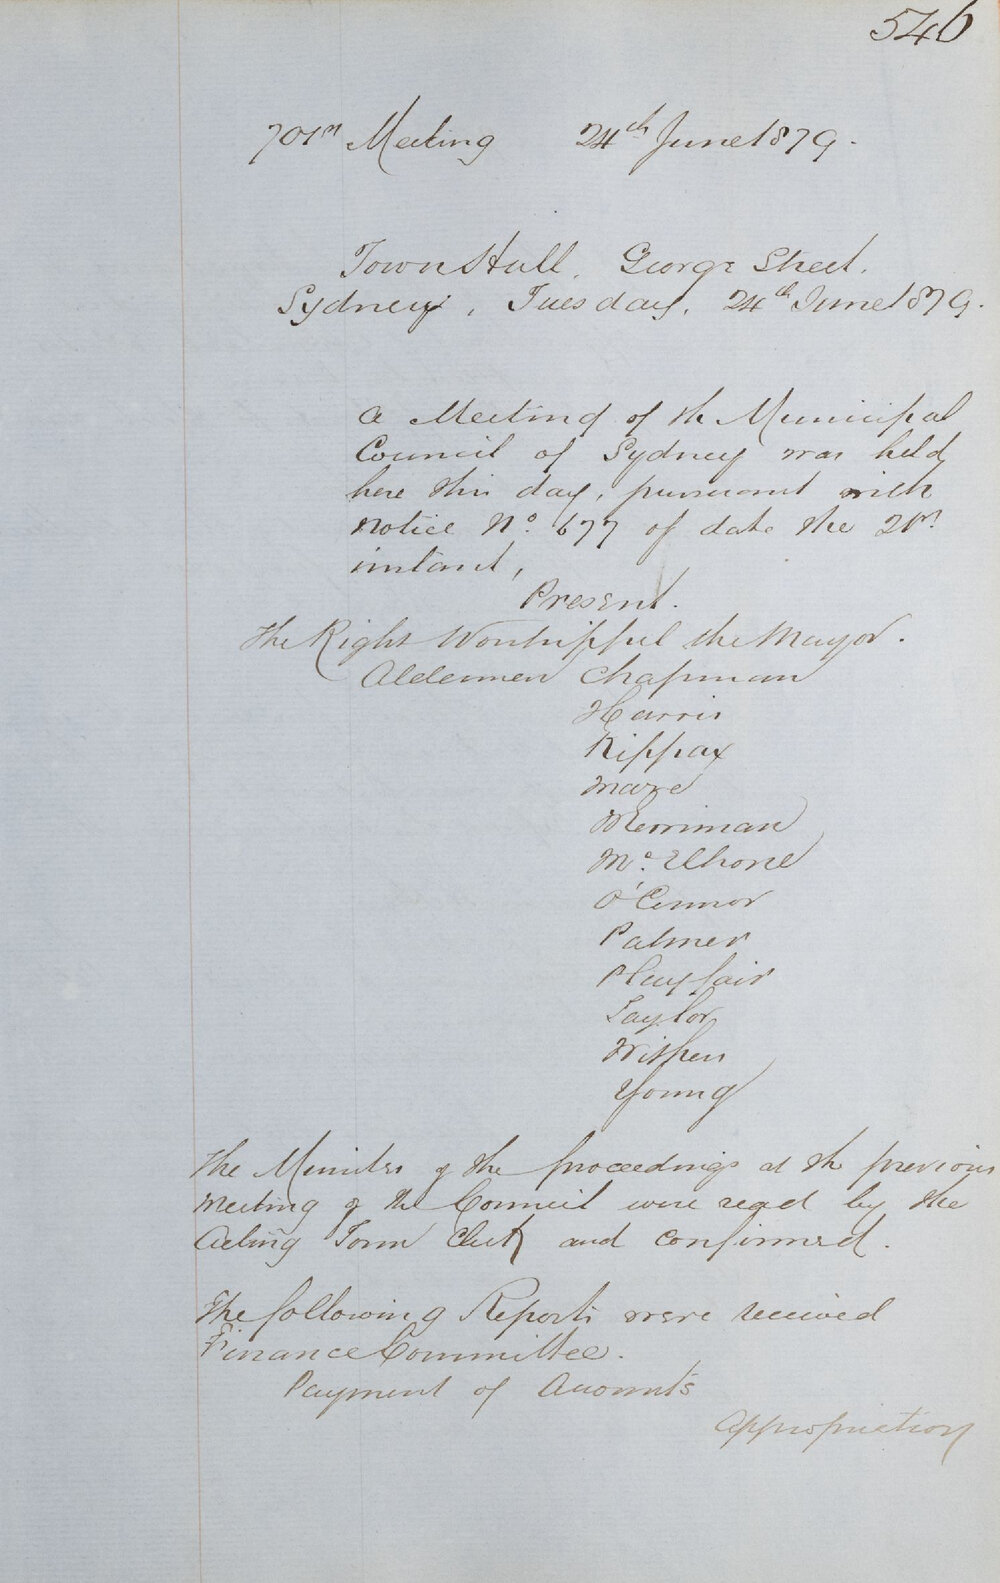 546
701st Meeting 24th June 1879.
Town Hall, George Street,
Sydney, Tuesday, 24th June 1879.
A Meeting of the Municipal
Council of Sydney was held
here this day, pursuant with
notice No. 677 of date the 21st
instant,
Present.
The Right Worshipful the Mayor.
Aldermen Chapman
Harris
Kippax
Maze
Merriman
Mc. Elhone
O'Connor
Palmer
Playfair
Taylor
Withers
Young
The Minutes of the proceedings at the previous
meeting of the Council were read by the
Acting Town Clerk and confirmed.
The following Reports were received
Finance Committee.
Payment of Accounts
Appropriation